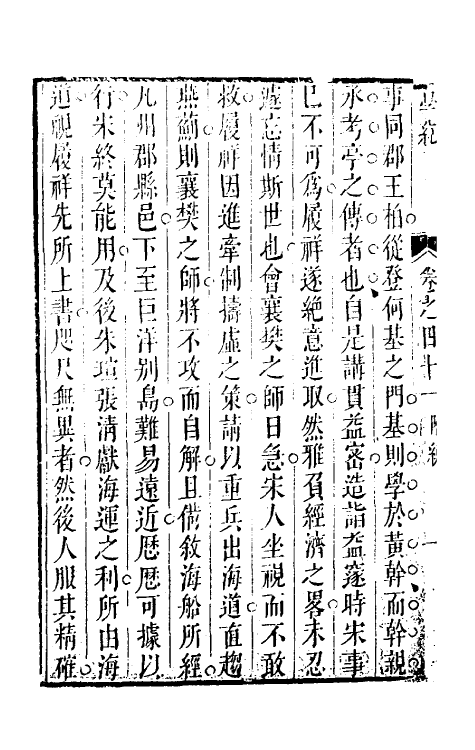 卷之四十一
事同郡王柏從登何基之門基則學於黃幹而幹親
承考亭之傳者也自是講貫益密造詣益邃時宋事
已不可爲履祥遂絕意進取然雅負經濟之畧未忍
遽忘情斯世也會襄樊之師日急宋人坐視而不敢
救履祥因進牽制擣虛之策請以重兵出海道直趨
燕薊則襄樊之師將不攻而自解且備敘海船所經
凡州郡縣邑下至巨洋別島難易遠近歷歷可據以
行宋終莫能用及後朱瑄張清獻海運之利所由海
道視履祥先所上書咫尺無異者然後人服其精確